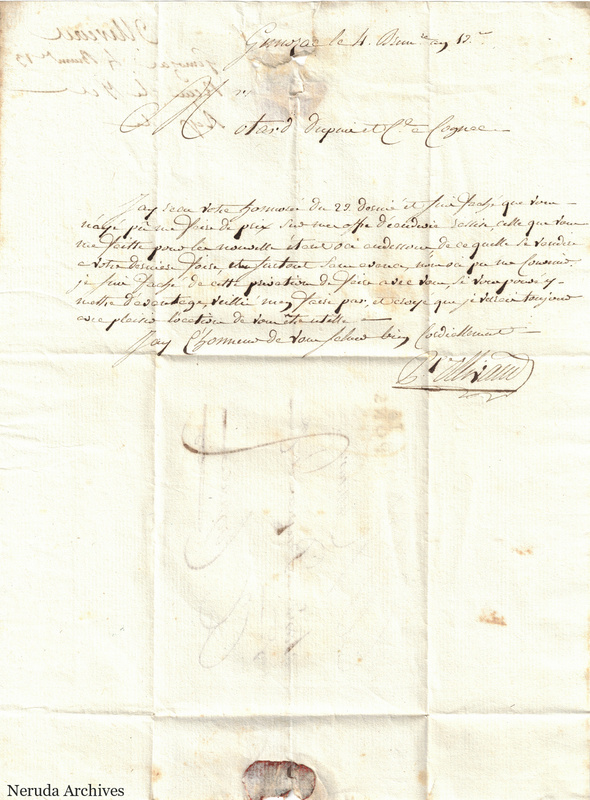 Gemozac le 4. Brum.re an 13.me
Mrs
Otard Dupuis et Cie a Cognac
J'ay reçu votre honorée du 29. dernier et suis faché que vous
n'ayés pu me faire de prix sur mon offre d'eaudevie celle que vous
me faitte pour la nouvelle étant au dessous de ce qu'elle se vendu
a votre derniere foire, et surtout sans avance, non a pu me convenir.
je suis faché de cette privation de faire avec vous, si vous pouvés y
mettre davantage, veillés m'en faire part, et croyé que je verrai toujours
avec plaisir l'ocation de vous être utille
J'ay l'honneur de vous saluer bien Cordiallement
Neruda Archives